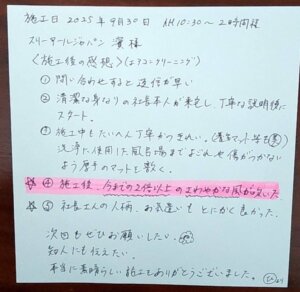 施工日 2025年9月30日 AM10:30〜2時間程
スリーアールジャパン 濱様
〈施工後の感想〉(エアコンクリーニング)
① 問い合わせすると返信が早い
② 清潔な身なりの社長本人が来宅し、丁寧な説明後に
スタート。
③ 施工中もたいへん丁寧かつきれい。
洗浄に使用した風呂場までよごれや傷がつかない
よう厚手のマットを敷く。
☆④ 施工後、今までの2倍以上のさわやかな風が吹いた
☆⑤ 社長さんの人柄、お気遣いもとにかく良かった。
次回もぜひお願いしたい。
知人にも伝えたい。
本当に素晴らしい施工をありがとうございました。